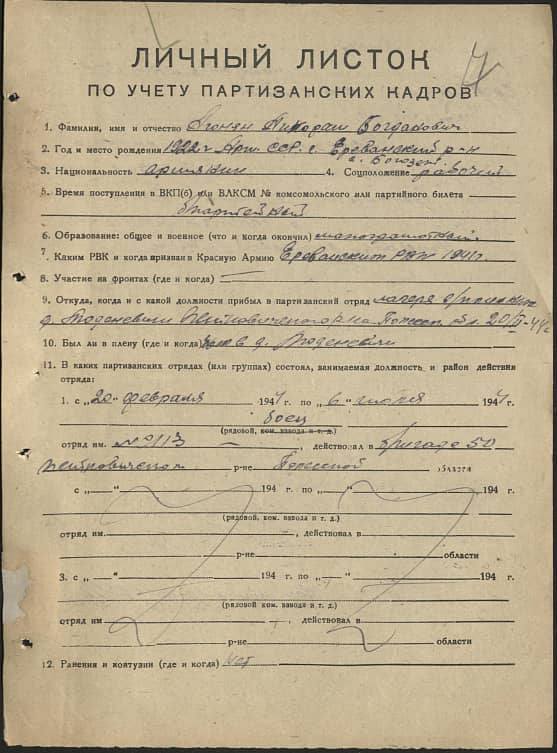 ЛИЧНЫЙ ЛИСТОК
ПО УЧЕТУ ПАРТИЗАНСКИХ КАДРОВ
1. Фамилия, имя и отчество Богданович
2. Год и место рождения 1922 г Арм. ССР. г. Ереванский р-н
3. Национальность армянин 4. Соцположение рабочий
5. Время поступления в ВКП(б) или ВЛКСМ № комсомольского или партийного билета
6. Образование: общее и военное (что и когда окончил) малограмотный.
7. Каким РВК и когда призван в Красную Армию Ереванским РВК 1941 г.
8. Участие на фронтах (где и когда) —
9. Откуда, когда и с какой должности прибыл в партизанский отряд лагеря
д.
10. Был ли в плену (где и когда) в д.
11. В каких партизанских отрядах (или группах) состоял, занимаемая должность и район действия
отряда:
1. с „20" февраля 1944 г. по „6" июля 1944 г.
боец
(рядовой, ком. взвода и т. д.)
отряд им. № 113 —, действовал в бригаде 50
р-не Полесской области
с „—" 194 г. по „—" 194 г.
(рядовой, ком. взвода и т. д.)
отряд им. —, действовал в
р-не области
3. с „—" 194 г. по „—" 194 г.
(рядовой ком. взвода и т. д.)
отряд им —, действовал в
р-не области
12. Ранения и контузии (где и когда) нет